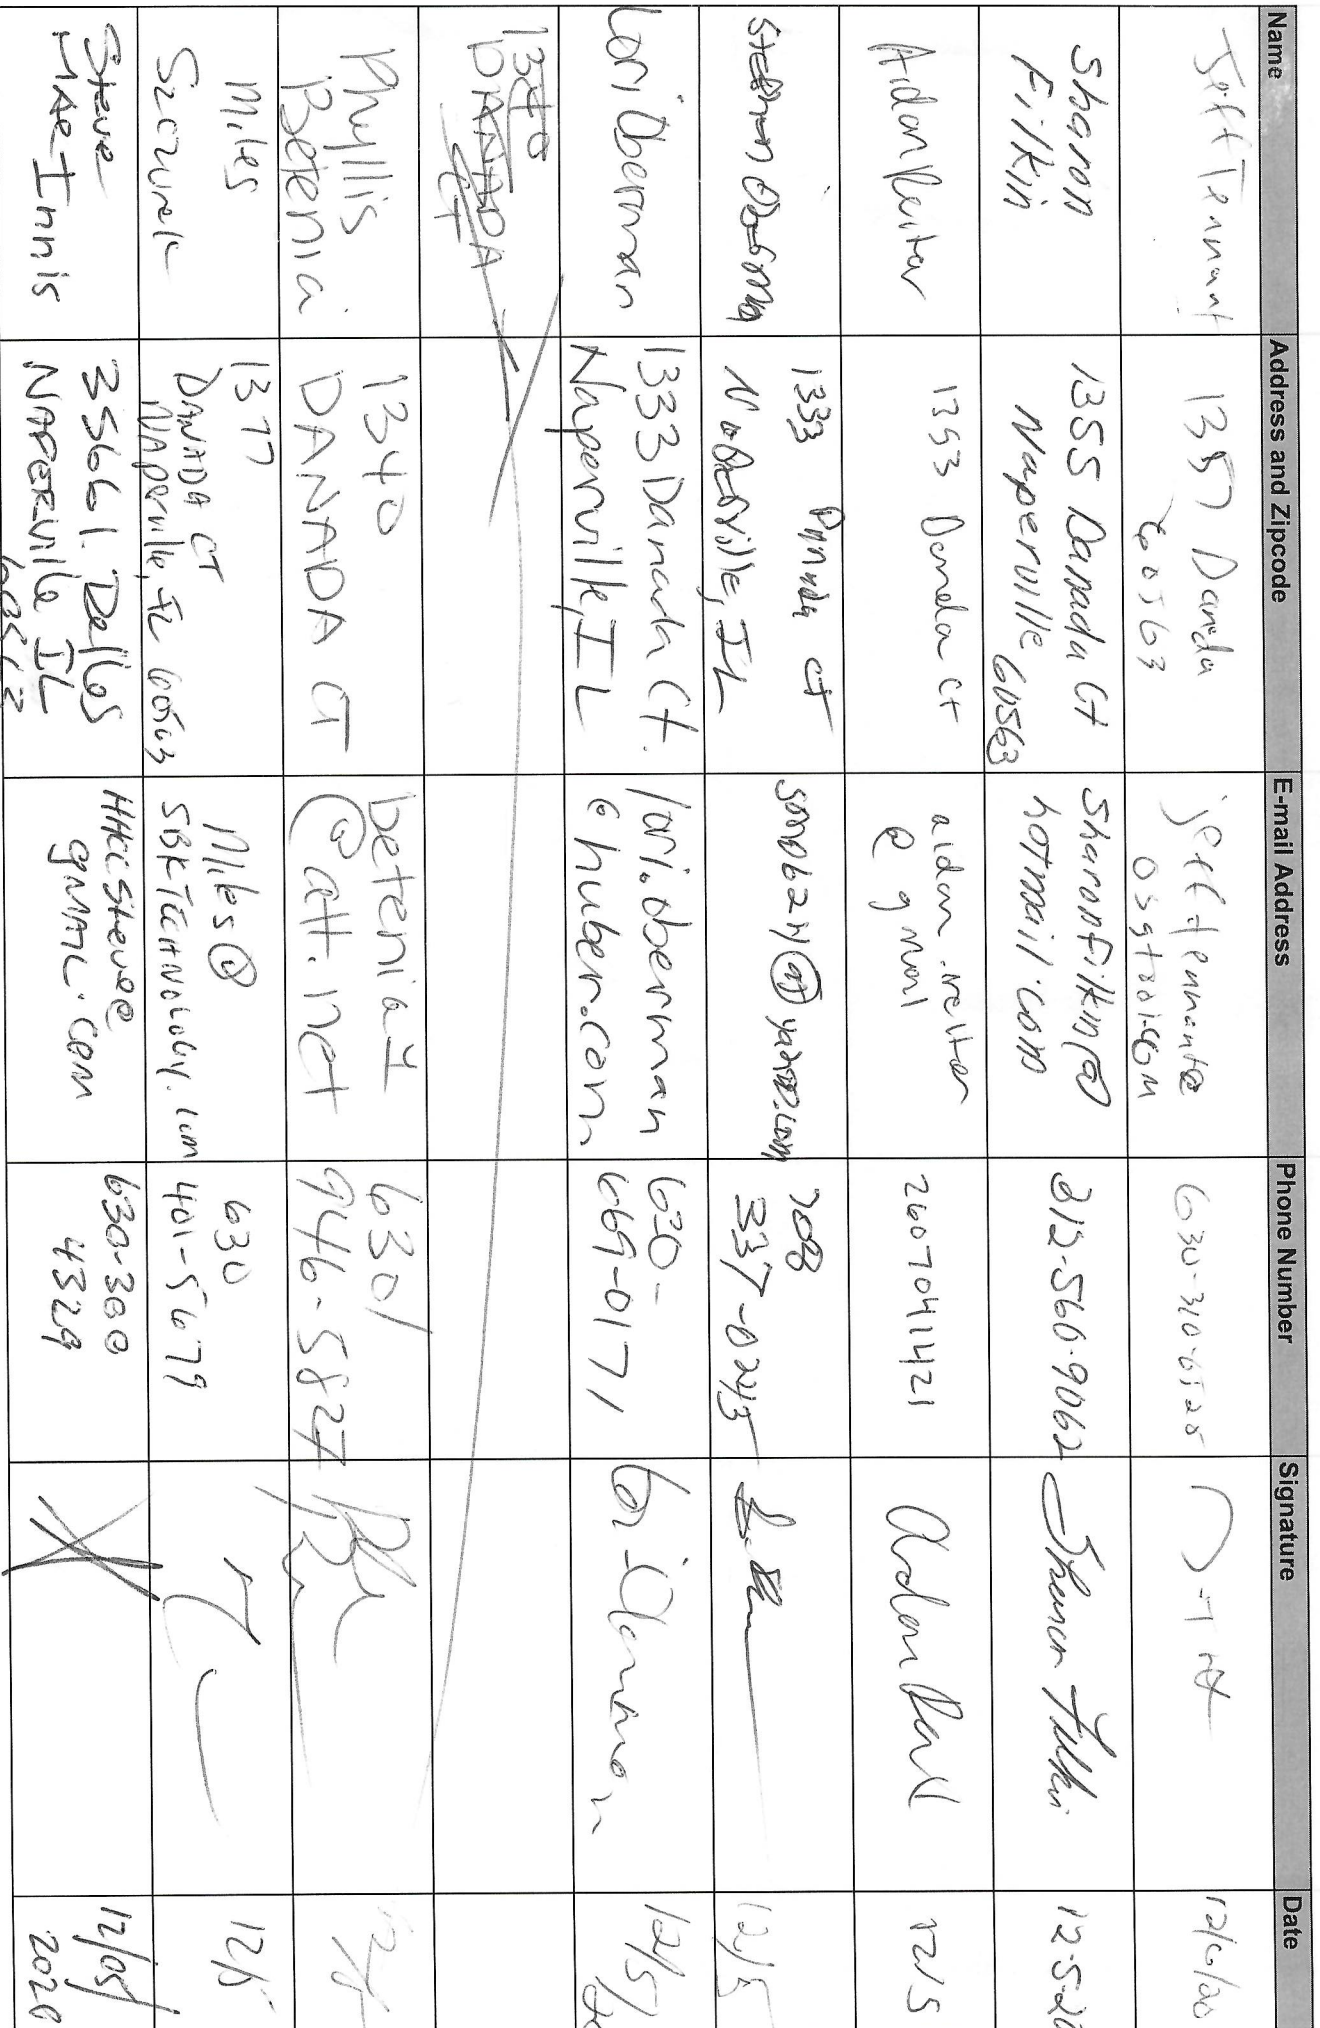 Name Address and Zipcode E-mail Address Phone Number Signature Date
Jeff Tennant
1357 Danada
60563
jefftennant@
630-310-6525
12/6/20
Sharon
Filkin
1355 Danada Ct
Naperville 60563
Sharonfilkin@
hotmail.com
312-560-9062
Sharon Filkin
12-5-20
Aidan Reiter
1353 Danda ct
aidan.reiter
@ gmail
2607041421
12/5
1333 Danada CT
Naperville, IL
yahoo.com
708
337-0243
12/5
Lori Oberman
1333 Danada Ct.
Naperville, IL
lori.oberman
@huber.com
630-
669-0171
Lori Oberman
12/5/
1340
DANADA
CT
Phyllis
Betenia
1340
DANADA CT
betenia4
@att.net
630/
946-5827
Miles
Szczurek
1377
DANADA CT
Naperville, IL 60563
Miles@
SBKTECHNOLOGY.com
630
401-5679
12/5
Steve
MAc Innis
NAPERVille IL
HHCSteve@
gMAIL.COM
630-300
4329
12/05/
2020